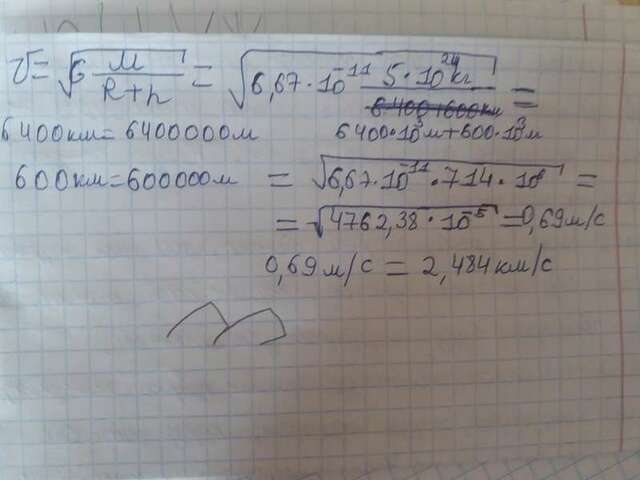 v = √(G M/(R+h)) = √(6,67·10⁻¹¹ 5·10²⁴кг/(6400·10³м+600·10³м)) =
6400км = 6400000м
600км = 600000м = √(6,67·10⁻¹¹·714·10⁸) =
= √(4762,38·10⁻⁵) = 0,69м/с
0,69м/с = 2,484км/с